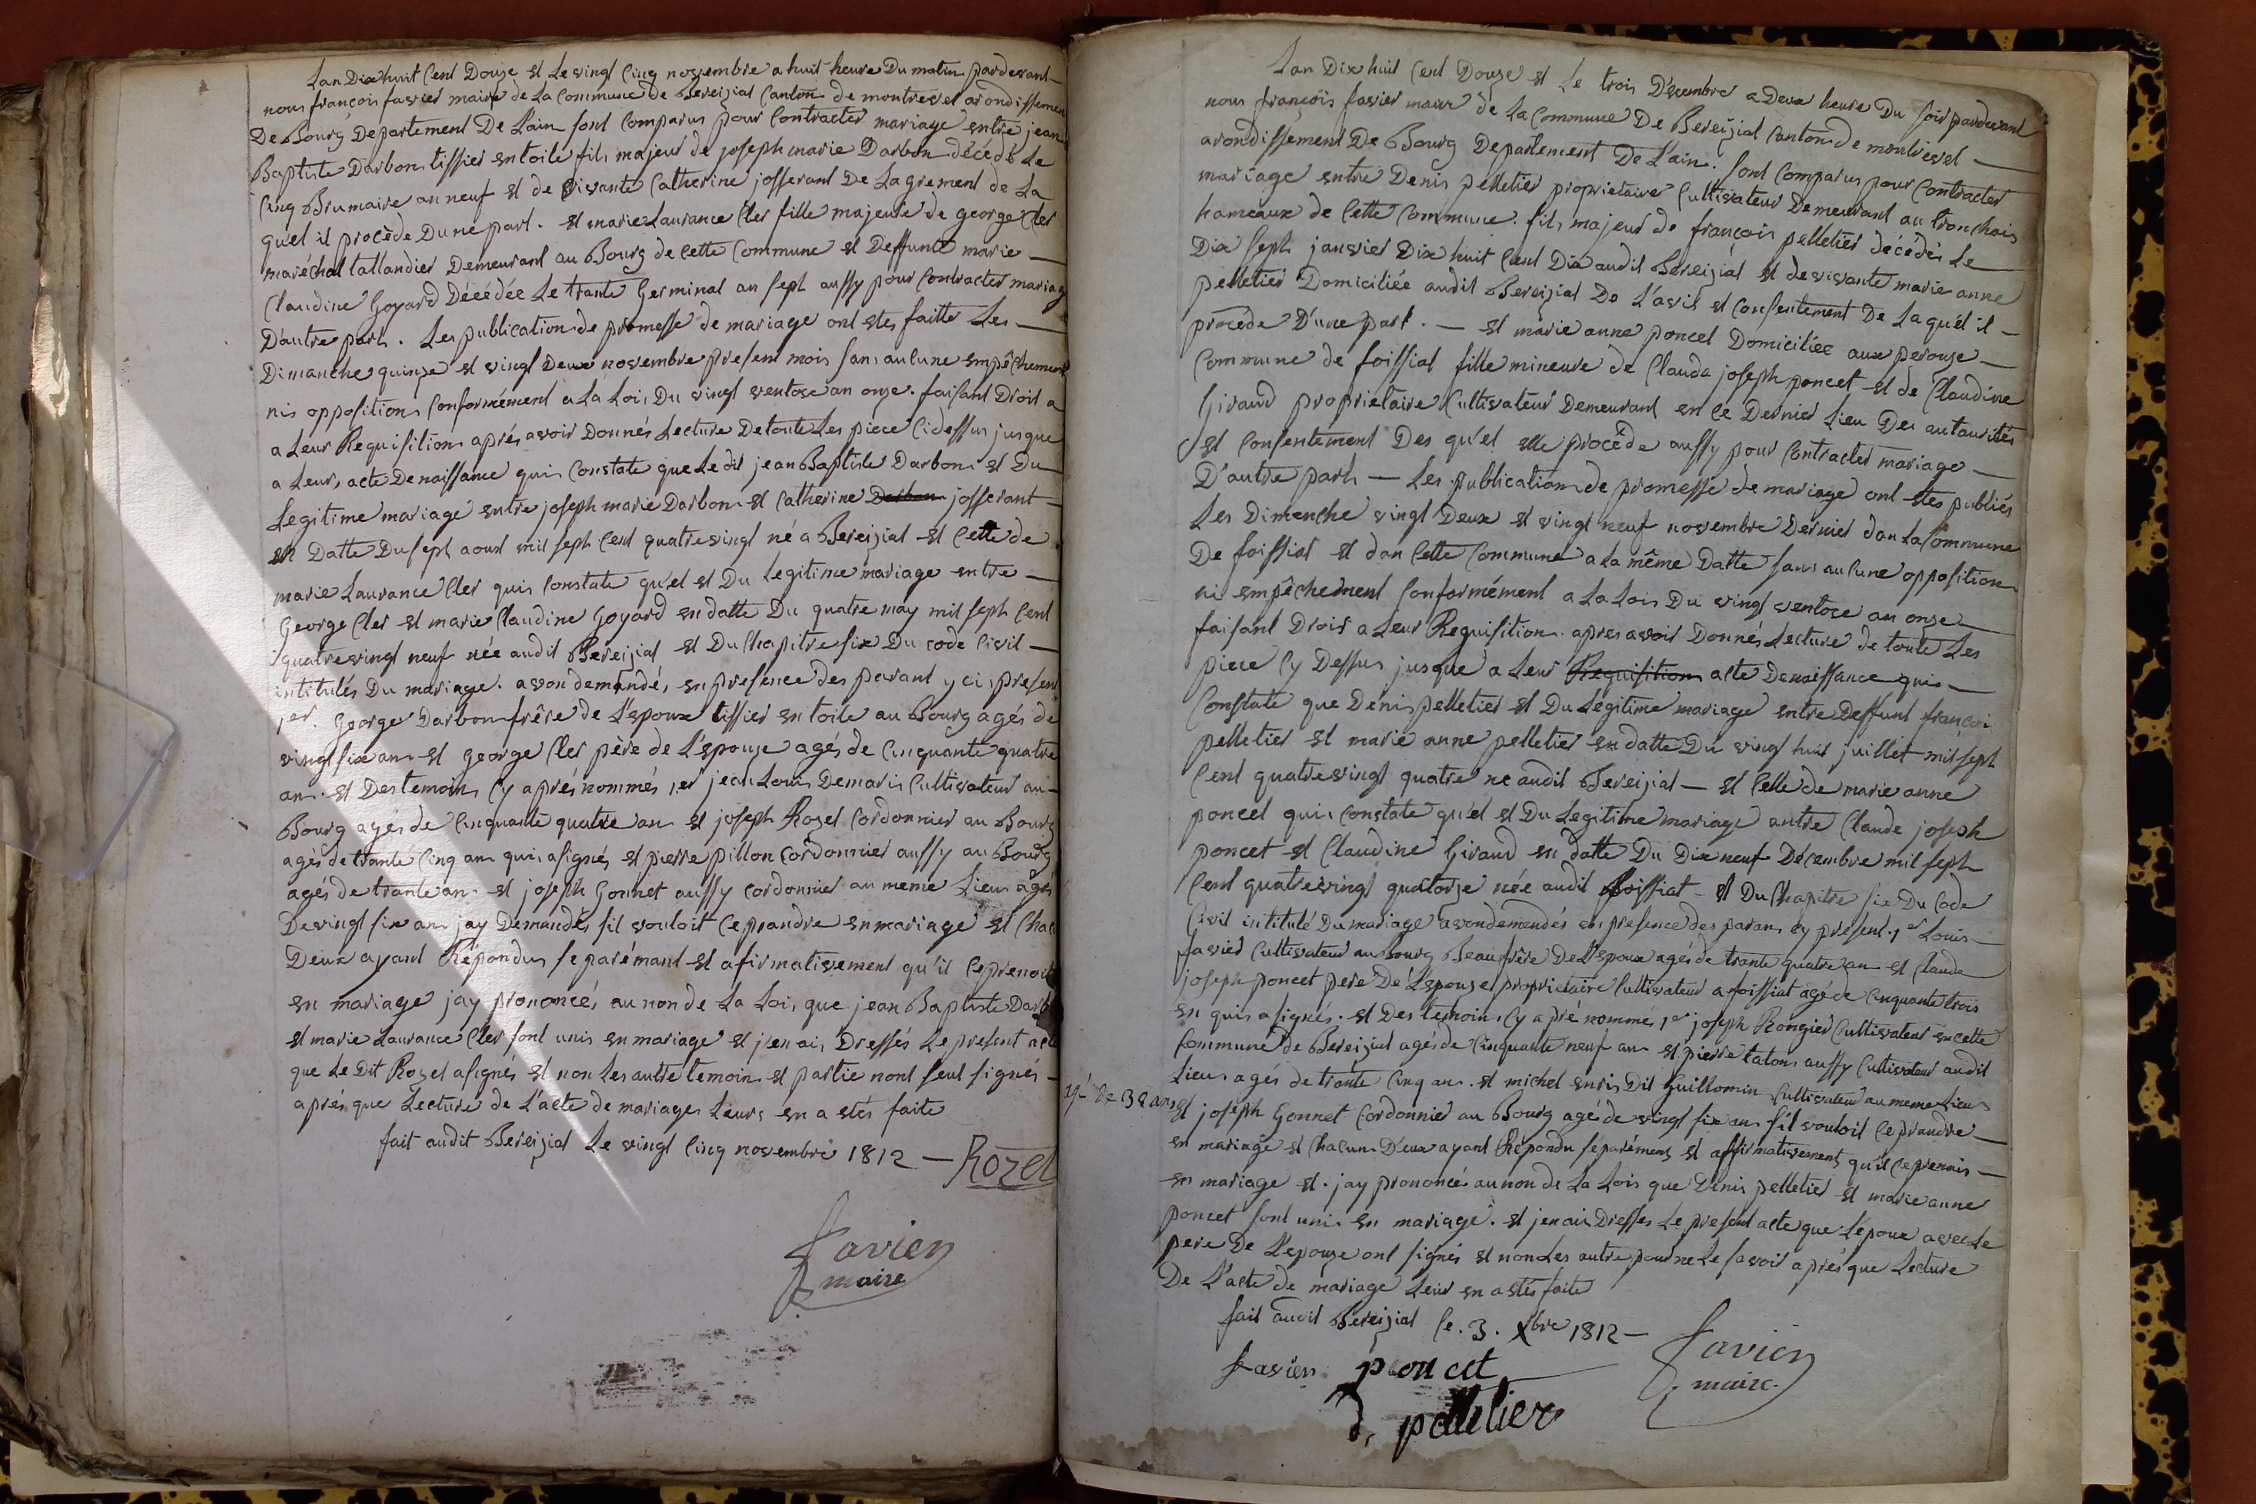 Lan Dix huit Cent Douze et Le vingt Cinq novembre a huit heure Du matin pardevant
nous françois favier maire de La Commune de Bereizial Canton de montrevel arondissement
De Bourg Departement De L'ain sont Comparus pour Contracter mariage entre jean
Baptiste Darbon tissier en toile fils majeur de joseph marie Darbon décédé Le
Cinq Brumaire an neuf et de vivante Catherine josserant De Lagrement de La
quel il procède Dune part. et marie Laurance Cler fille majeure de george Cler
maréchal tallandier Demeurant au Bourg de cette Commune et Deffunte marie
Claudine Goyard Décédée Le trante Germinal an sept aussy pour Contracter mariage
D'autre part. Les publication de promesse de mariage ont etes faitte Les
Dimanche quinze et vingt Deux novembre present mois sans aucune empêchement
nis opposition Conformément a La Loi, Du vingt ventose an onze. faisant Droit a
a Leur Requisition aprés avoir Donnés Lecture De toute Les piece Cidessus jusque
a Leurs acte De naissance qui Constate que Le dit jean Baptiste Darbon et Du
Legitime mariage entre joseph marie Darbon et Catherine Darbon josserant
en Datte Du sept aoust mil sept Cent quatrevingt né a Bereizial et Cette de
marie Laurance Cler qui Constate qu'el et Du Legitime mariage entre
George Cler et marie Claudine Goyard en datte Du quatre may mil sept Cent
quatrevingt neuf née audit Bereizial et Du Chapitre six Du code Civil
intitulés Du mariage. avon demandé, en presence des parant y ci, present
1er. George Darbon frêre de L'epoux tissier en toile au Bourg agés de
vingt six an et George Cler père de L'epouse agés de Cinquante quatre
an. et Des temoins Cy aprés nommés 1er jean Louis Demaris Cultivateur au
Bourg agés de Cinquante quatre an et joseph Rozel Cordonnier au Bourg
agés de trante Cinq an qui, asignés et pierre pillon Cordonnier aussy au Bourg
agés de trante an. et joseph Gonnet aussy cordonnier au meme Lieu agés
De vingt six an jay Demandés, sil vouloit Ceprandre en mariage et Chac
Deux ayant Répondus separémant et afirmativement qu'il Ceprenoit
en mariage jay prononcés au non de La Loi, que jean Baptiste Darb
et marie Laurance Cler sont unis en mariage et j'en ai, Dressés Le present acte
que Le Dit Rozel asignés et non Les autre temoin et partie nont seul signés
aprés que Lecture de L'acte de mariage Leurs en a etés faite
fait audit Bereizial Le vingt Cinq novembre 1812 — Rozel
favier
maire
Lan Dix huit Cent Douze et Le trois Décembre a Deux heure Du soir pardevant
nous françois favier maire de La Commune De Bereizial Canton de montrevel
arondissement De Bourg Departement De L'ain. sont Comparus pour Contracter
mariage entre Denis pelletier proprietaire Cultivateur Demeurant au tronchais
hameaux de Cette Commune. fils majeur de françois pelletier décédés Le
Dix Sept janvier Dix huit Cent Dix audit Bereizial et de vivante marie anne
pelletier Domiciliée audit Bereizial De L'avis et Consentement De Laquél il
procéde D'une part. — et marie anne poncet Domiciliée aux perouze
Commune de foissial fille mineure de Claude joseph poncet et de Claudine
Giraud proprietaire Cultivateur Demeurant en ce Dernier Lieu Des autaurités
et Consentement Des qu'el elle procède aussy pour Contracter mariage
D'autre part — Les publication de promesse de mariage ont etes publiés
Les Dimenche vingt Deux et vingt neuf novembre Dernier dan La Commune
De foissial et dan Cette Commune a La même Datte sans aucune opposition
ni empêchement Conformément a La Lois Du vingt ventose an onze
faisant Droit a Leur Requisition. apres avoir Donnés Lecture de toute Les
piece Cy Dessus jusque a Leur Requisition acte De naissance qui
Constate que Dénis pelletier et Du Legitime mariage entre Deffunt françoi
pelletier et marie anne pelletier en datte Du vingt huit juillet mil sept
Cent quatrevingt quatre ne audit Bereizial — et Celle de marie anne
poncet qui, constate qu'el et Du Legitime mariage autre Claude joseph
poncet et Claudine Giraud en datte Du Dix neuf Décembre mil sept
Cent quatrevingt quatorze née audit foissiat — et Du Chapitre six Du Code
Civil intitulé Du mariage avon demendés en presence des paran cy présent. 1er Louis
favier Cultivateur au Bourg Beaufrêre De L'epoux agés de trante quatre an et Claude
joseph poncet pere De L'epouze proprietaire Cultivateur a foissiat agé de Cinquante trois
en qui, asignés. et Des temoin, Cy a pré nommé, 1er joseph Rongier Cultivateur en cette
Commune De Bereizial agés de Cinquante neuf an et pierre taton aussy Cultivateur audit
Lieu agés de trante Cinq an. et michel envis Dit Guillomin Cultivateur au meme Lieu
agé de 32 ans et joseph Gonnet Cordonnier au Bourg agé de vingt six an sil vouloit Ceprandre
en mariage et Chacun D'eux ayant Répondu séparémens et affirmativement, qu'il Ceprennis
en mariage et. jay prononcé au non de La Lois que Denis pelletier et marie anne
poncet sont uni en mariage. et jenais Dresses Le present acte que L'époux avec Le
pere De L'epouze ont signés et non Les autre pour ne Le savoir aprés que Lecture
De L'acte de mariage Leur en a etés faite
fait audit Bereizial Ce. 3. Xbre 1812 —
favier poncet favier
maire.
d, pelletier